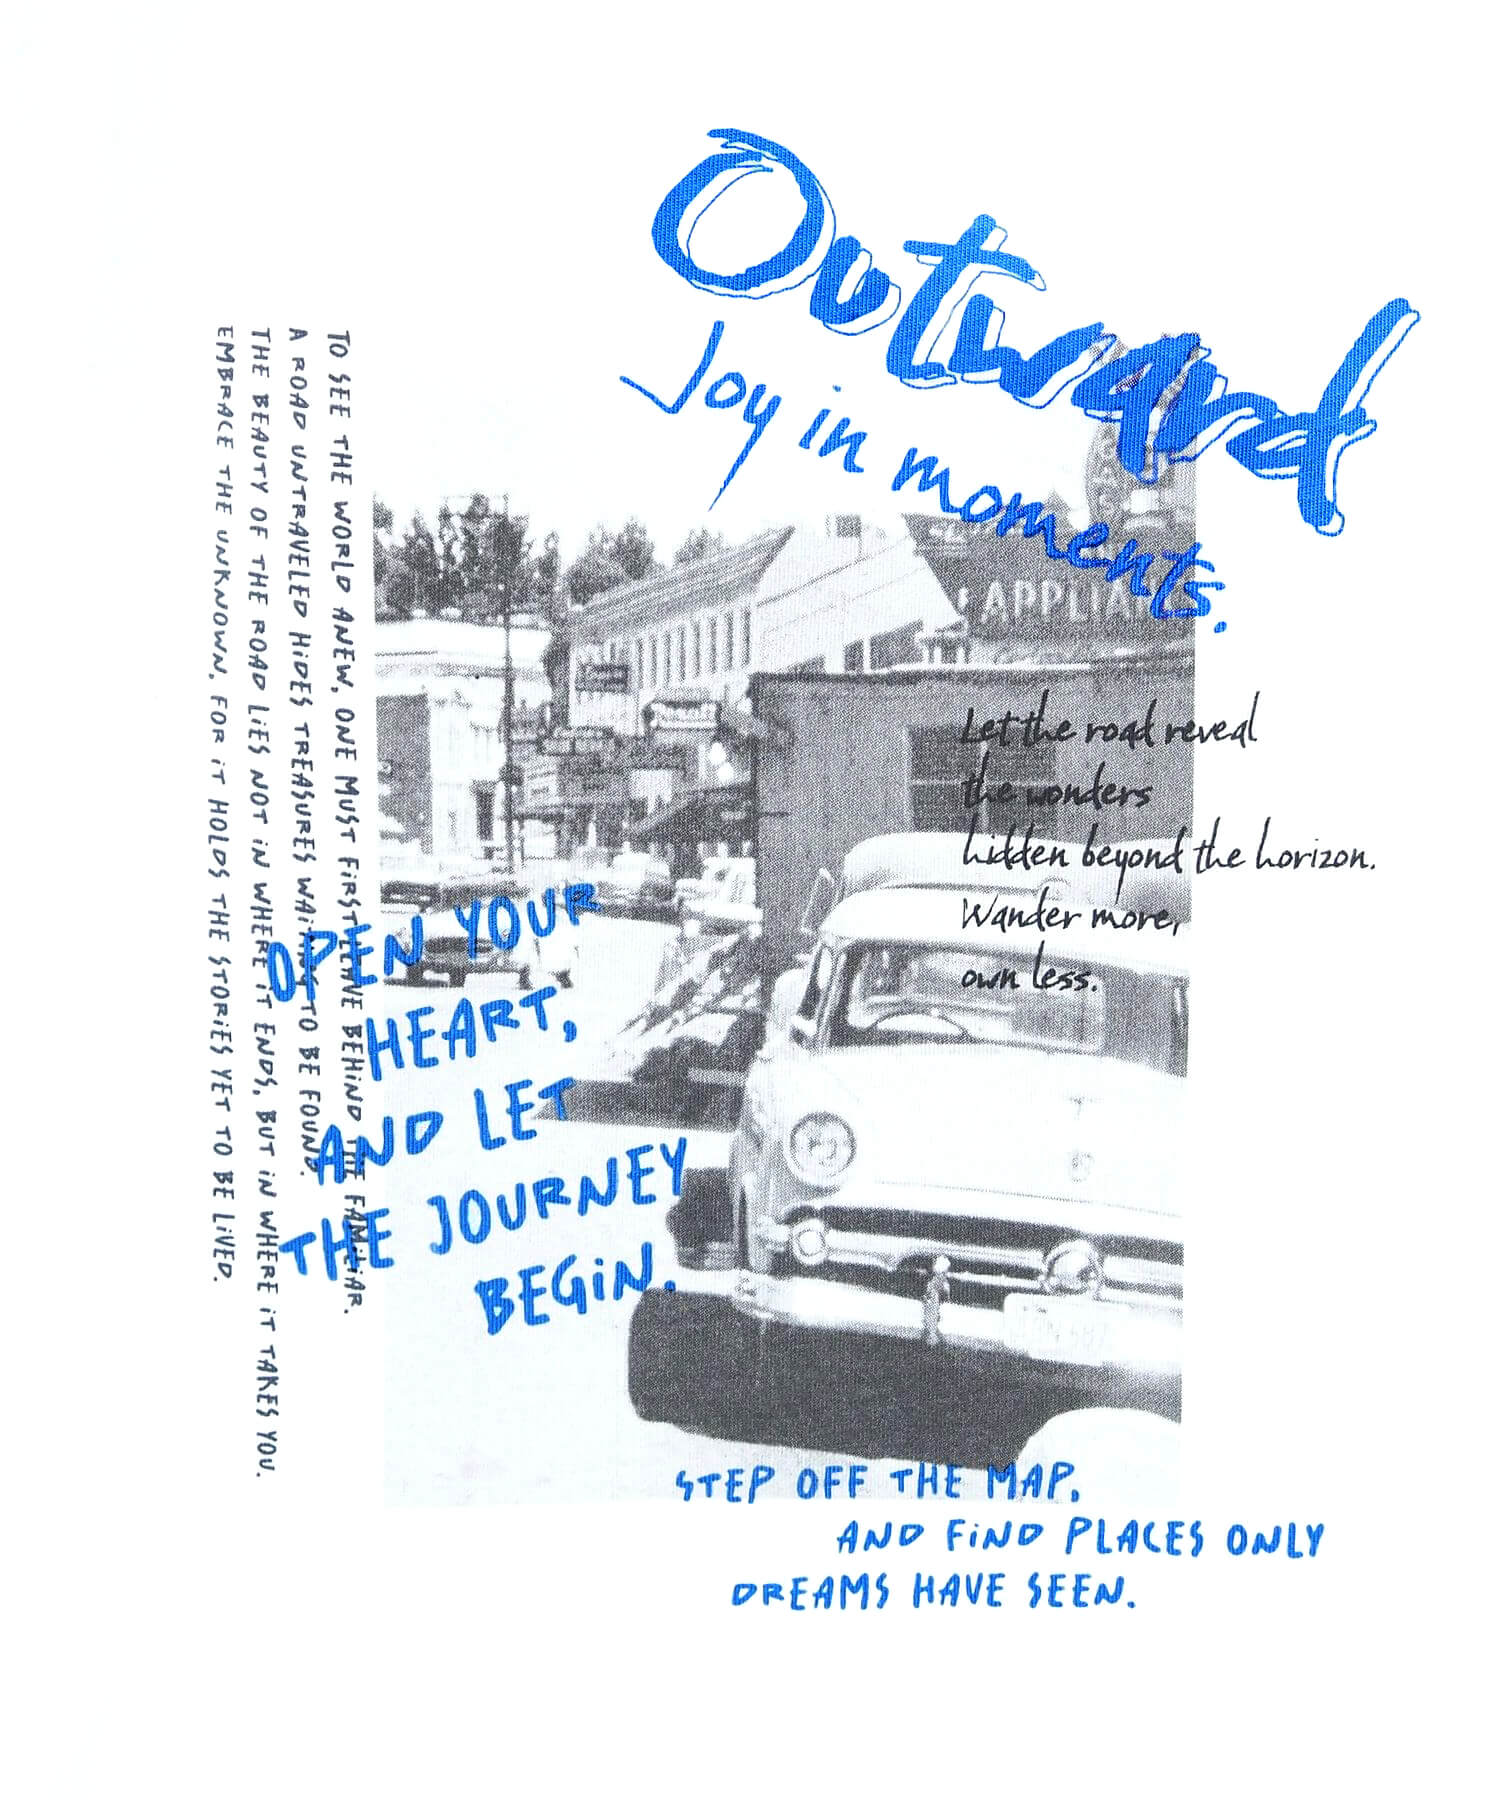 Outward
Joy in moments.
GAS
APPLIAN
Let the road reveal
the wonders
hidden beyond the horizon.
Wander more,
own less.
TO SEE THE WORLD ANEW, ONE MUST FiRST LEAVE BEHiND THE FAMiLiAR.
A ROAD UNTRAVELED HiDES TREASURES WAiTiNG TO BE FOUND.
THE BEAUTY OF THE ROAD LiES NOT iN WHERE iT ENDS, BUT iN WHERE iT TAKES YOU.
EMBRACE THE UNKNOWN, FOR iT HOLDS THE STORiES YET TO BE LiVED.
OPEN YOUR
HEART,
AND LET
THE JOURNEY
BEGiN.
STEP OFF THE MAP,
AND FiND PLACES ONLY
DREAMS HAVE SEEN.